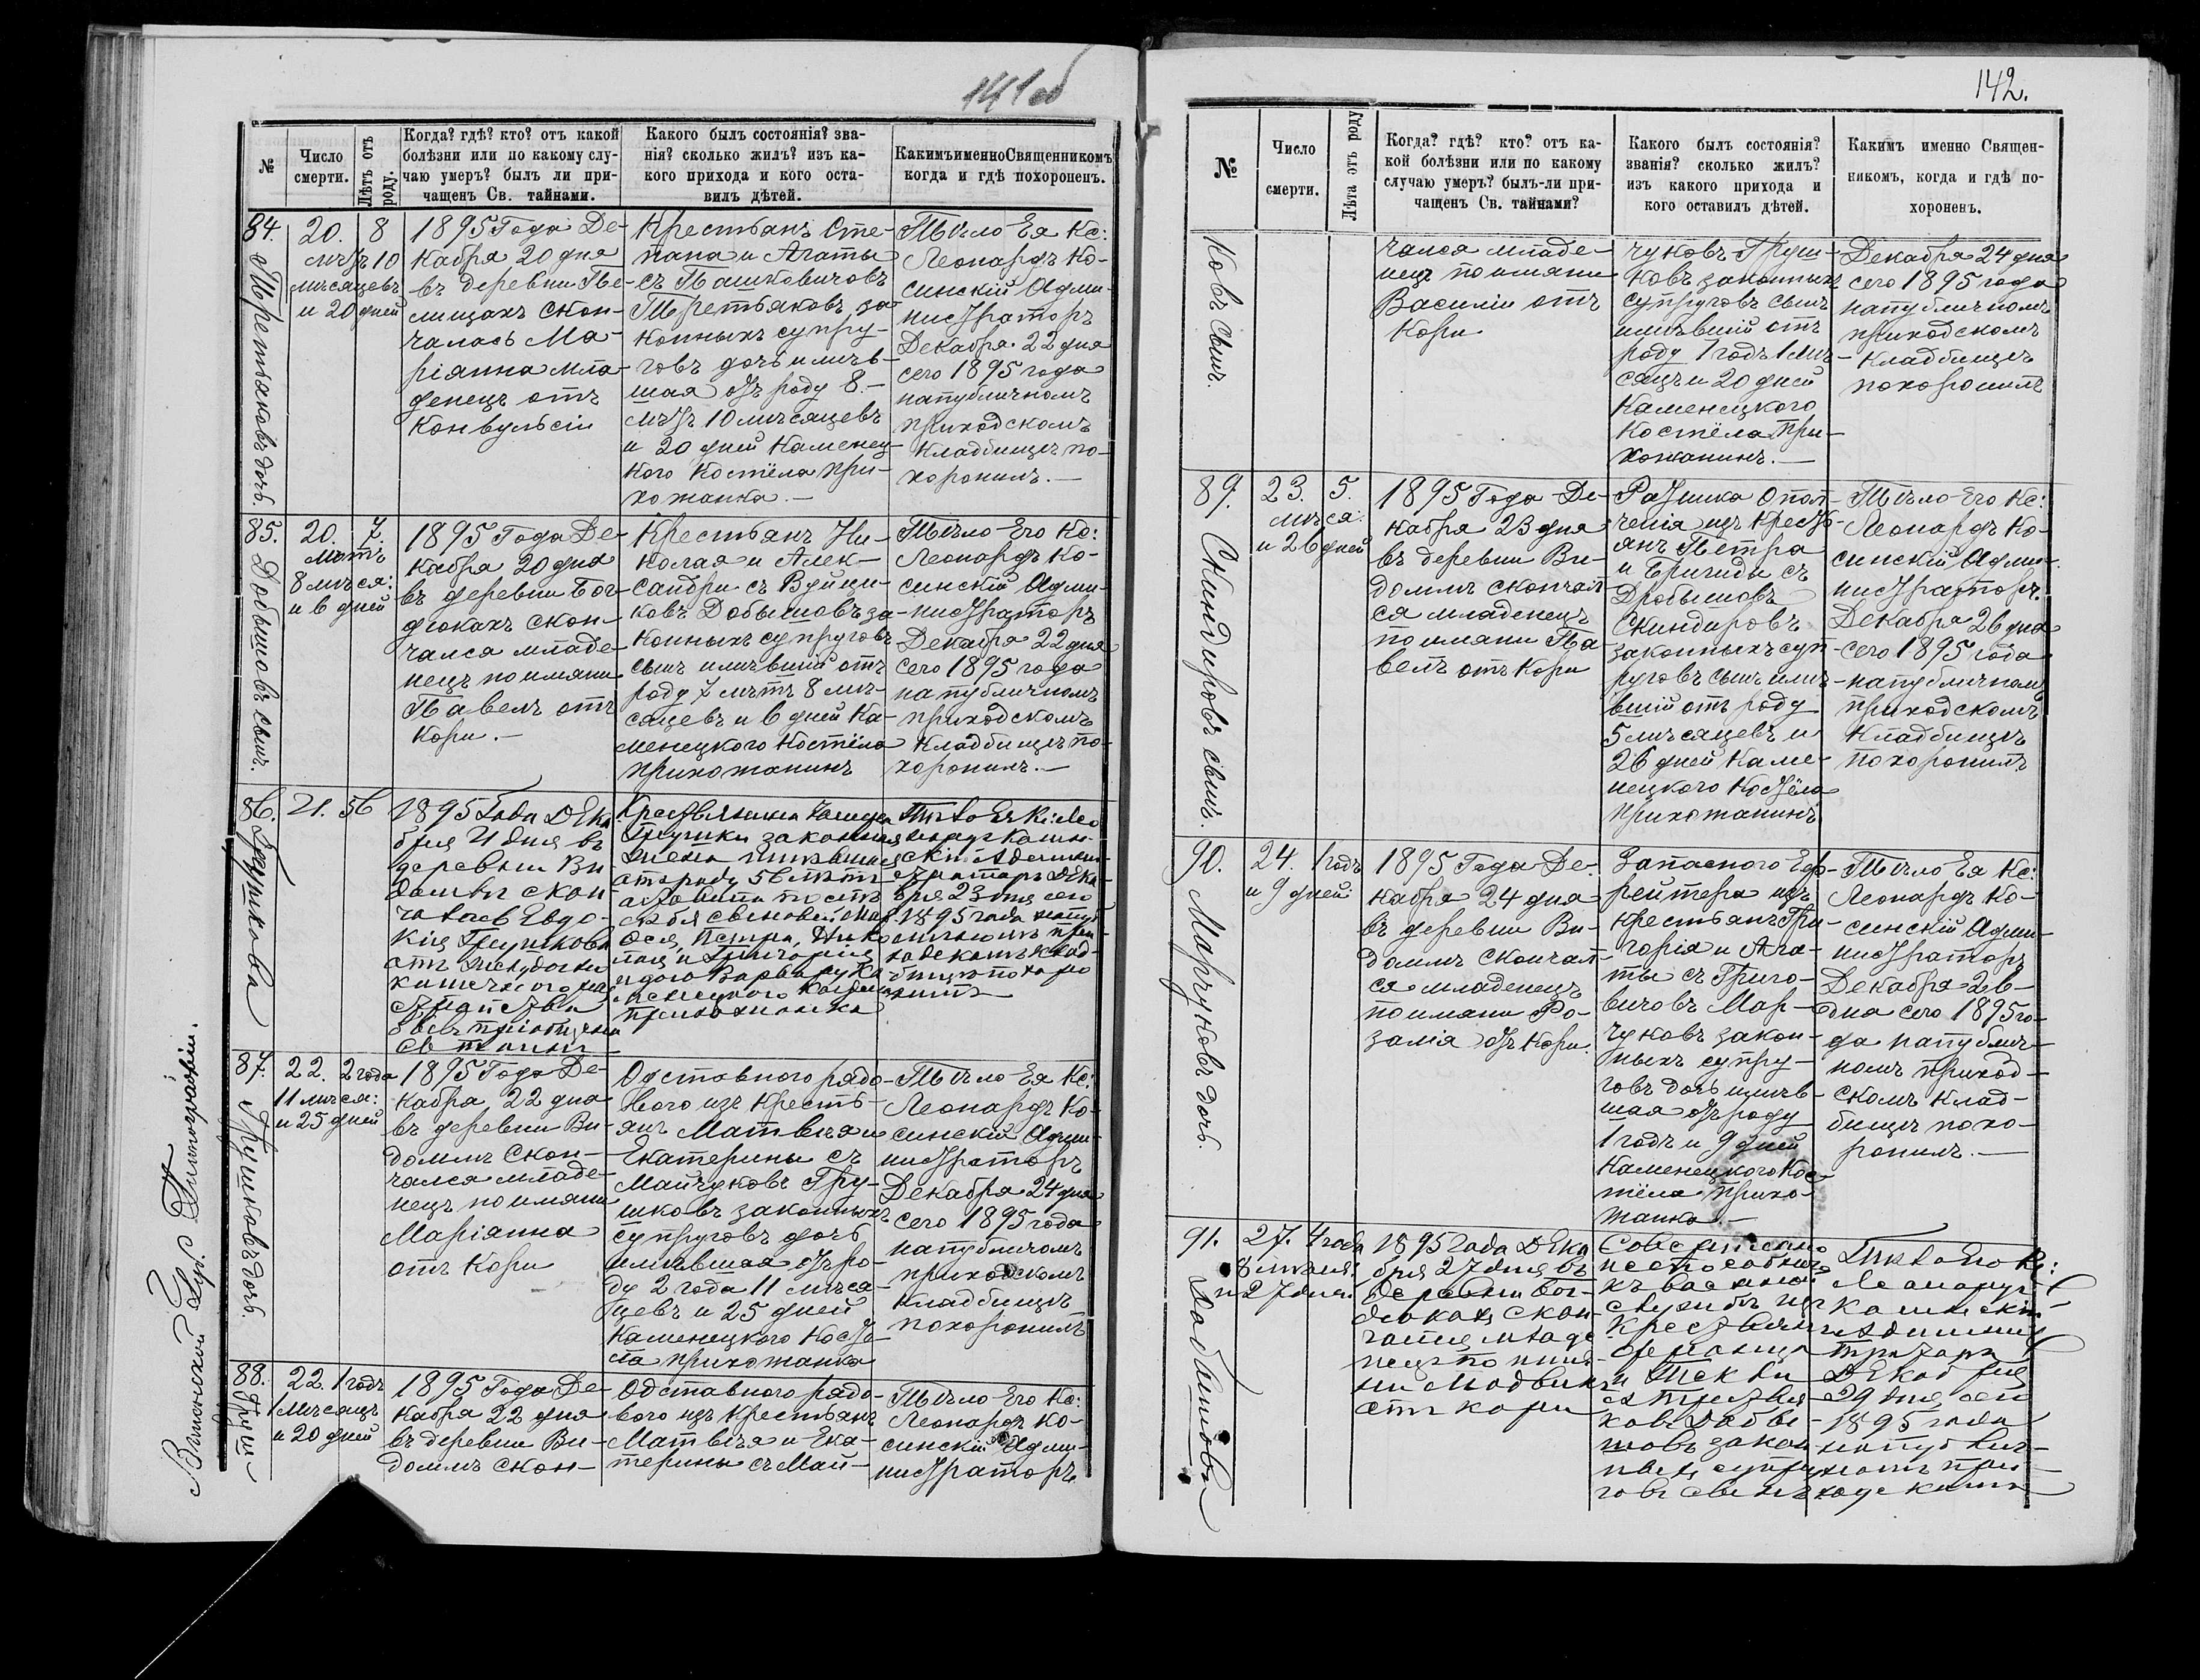 141 об
№
Число смерти.
Лѣтъ отъ роду.
Когда? гдѣ? кто? отъ какой болѣзни или по какому случаю умеръ? былъ ли причащенъ Св. тайнами.
Какого былъ состоянія? званія? сколько жилъ? изъ какого прихода и кого оставилъ дѣтей.
Какимъ именно Священникомъ когда и гдѣ похороненъ.
84.
Третьяковъ дочь.
20.
8
лѣтъ 10
мѣсяцевъ
и 20 дней
1895 Года Де-
кабря 20 дня
въ деревни Пе-
лищахъ скон-
чалась Ма-
ріянна мла-
денецъ отъ
Конвульсіи
Крестьянъ Сте-
пана и Агаты
съ Пашковичовъ
Третьяковъ за-
конныхъ супру-
говъ дочь имѣв-
шая отъ роду 8
лѣтъ 10 мѣсяцевъ
и 20 дней Каменец-
кого Костёла при-
хожанка.—
Тѣло Ея Кс:
Леонардъ Ко-
синскій Адми-
нистраторъ
Декабря 22 дня
сего 1895 года
на публичномъ
приходскомъ
Кладбищѣ по-
хоронилъ.—
85.
Добышовъ сынъ.
20.
7.
лѣтъ
8 мѣся:
и 6 дней
1895 Года Де-
кабря 20 дня
въ деревни Бог-
дюкахъ скон-
чался младе-
нецъ по имяни
Павелъ отъ
Кори.—
Крестьянъ Ни-
колая и Алек-
сандри съ Вуйци-
ковъ Добышовъ за-
конныхъ супруговъ
сынъ имѣвшій отъ
роду 7 лѣтъ 8 мѣ-
сяцевъ и 6 дней Ка-
менецкого Костёла
прихожанинъ
Тѣло Его Кс:
Леонардъ Ко-
синскій Адми-
нистраторъ
Декабря 22 дня
сего 1895 года
на публичномъ
приходскомъ
Кладбищѣ по-
хоронилъ.—
86.
Грушкова
21.
56
1895 Года Дека
бря 21 дня въ
деревни Ви
домлѣ скон
чалась Евдо-
кія Грушкова
отъ
Св тайнъ
Крестьянина
Грушки законная
жена имѣвшая
отъ роду 56 лѣтъ
оставила послѣ
себя сыновей
Петра, Нико
лая и Григорія
и дочь Варвару Ка
менецкого Костёла
прихожанка
Тѣло Ея Кс: Лео
нардъ Косин-
скій Админи-
страторъ Дека
бря 23 дня сего
1895 года на публ
ичномъ при
ходскомъ клад-
бищѣ похоро
нилъ
87.
Грушковъ дочь.
22.
2 года
11 мѣся:
и 25 дней
1895 Года Де-
кабря 22 дня
въ деревни Ви-
домлѣ Скон-
чался младе-
нецъ по имяни
Маріянна
отъ Кори
Отставного рядо-
вого изъ Кресть-
янъ Матвѣя и
Екатерины съ
Майчуковъ Гру-
шковъ законныхъ
супруговъ дочь
имѣвшая отъ ро-
ду 2 года 11 мѣся-
цевъ и 25 дней
Каменецкого Костё-
ла прихожанка
Тѣло Ея Кс:
Леонардъ Ко-
синскій Адми-
нистраторъ
Декабря 24 дня
сего 1895 года
на публичомъ
приходскомъ
Кладбищѣ
похоронилъ
88.
Груш-
22.
1 годъ
1 Мѣсяцъ
и 20 дней
1895 Года Де-
кабря 22 дня
въ деревни Ви-
домлѣ скон-
Отставного рядо-
вого изъ Крестьянъ
Матвѣя и Ека-
терины съ Май-
Тѣло Его Кс:
Леонардъ Ко-
синскій Адми-
нистраторъ
Виленской Губ. Типографіи.
142.
№
Число смерти.
Лѣта отъ роду
Когда? гдѣ? кто? отъ какой болѣзни или по какому случаю умеръ? былъ-ли причащенъ Св. тайнами?
Какого былъ состоянія? званія? сколько жилъ? изъ какого прихода и кого оставилъ дѣтей.
Какимъ именно Священникомъ, когда и гдѣ похороненъ.
Ковъ сынъ.
чался младе-
нецъ по имяни
Василій отъ
Кори
чуковъ Груш-
ковъ законныхъ
супруговъ сынъ
имѣвшій отъ
роду 1 годъ 1 мѣ-
сяцъ и 20 дней
Каменецкого
Костёла при-
хожанинъ.—
Декабря 24 дня
сего 1895 года
на публичномъ
приходскомъ
Кладбищѣ
похоронилъ
89.
Скиндировъ сынъ.
23.
5.
мѣся:
и 26 дней
1895 Года Де-
кабря 23 дня
въ деревни Ви-
домлѣ скончал-
ся младенецъ
по имяни Па-
велъ отъ Кори
Ратника Опол-
ченія изъ Крест-
янъ Петра
и Бригиды съ
Добышовъ
Скиндировъ
законныхъ суп-
руговъ сынъ имѣ-
вшій отъ роду
5 мѣсяцевъ и
26 дней Каме-
нецкого Костёла
прихожанинъ
Тѣло Его Кс:
Леонардъ Ко-
синскій Адми-
нистраторъ
Декабря 26 дня
сего 1895 года
на публичномъ
приходскомъ
Кладбищѣ
похоронилъ
90.
Марчуковъ дочь.
24.
1 годъ
и 9 дней
1895 Года Де-
кабря 24 дня
въ деревни Ви-
домлѣ скончал-
ся младенецъ
по имяни Ро-
залія отъ Кори
Запасного Еф-
рейтера изъ
Крестьянъ Гри-
горія и Ага-
ты съ Григо-
вичовъ Мар-
чуковъ закон-
ныхъ супру-
говъ дочь имѣв-
шая отъ роду
1 годъ и 9 дней
Каменецкого Кос-
тёла прихо-
жанка.—
Тѣло Ея Кс:
Леонардъ Ко-
синскій Адми-
нистраторъ
Декабря 26
дна сего 1895 го-
да на публич-
номъ приход-
скомъ клад-
бищѣ похо-
ронилъ.—
91.
Добышовъ
27.
4 года
8 мѣсяц.
и 27 дней
1895 Года Дека
бря 27 дня въ
Деревни Бог-
дюкахъ скон-
чался младе
нецъ по имя-
ни Людвикъ
отъ кори
Совершенно
неспособнаго
къ военной
службѣ изъ
Крестьянъ
и Теклы
съ Третья
ковъ Добы-
шовъ закон
ныхъ супру
говъ сынъ
Тѣло Его Кс:
Леонардъ
Косинскій
Админис
траторъ
Декабря
29 дня сего
1895 года
на публич-
номъ при-
ходскомъ